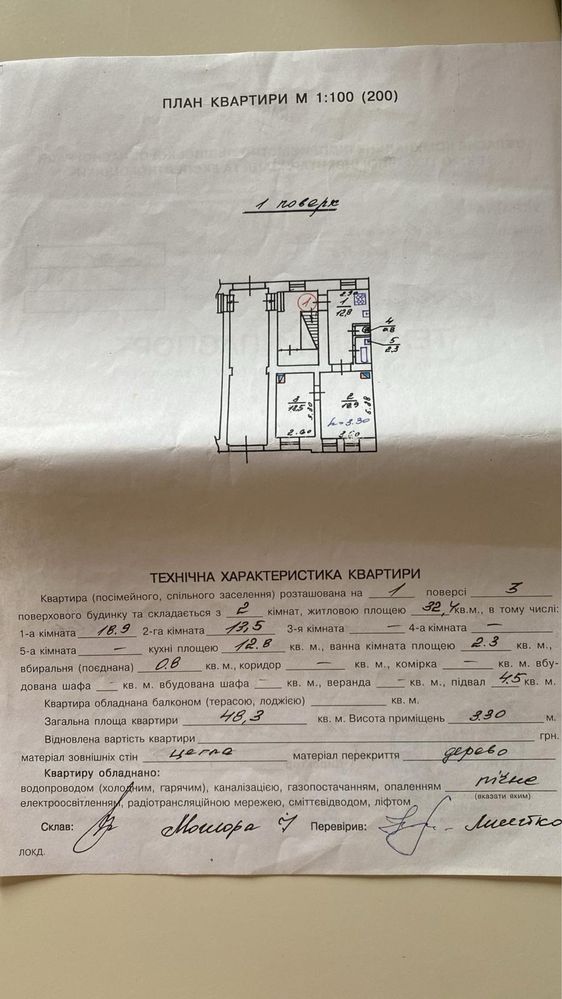 ПЛАН КВАРТИРИ М 1:100 (200)
1 поверх
1
2.30
1
12.8
4
0.8
5
2.3
3
13.5
2
18.9
h=3.30
ТЕХНІЧНА ХАРАКТЕРИСТИКА КВАРТИРИ
Квартира (посімейного, спільного заселення) розташована на 1 поверсі 3
поверхового будинку та складається з 2 кімнат, житловою площею 32,4 кв.м., в тому числі:
1-а кімната 18.9 2-га кімната 13,5 3-я кімната — 4-а кімната —
5-а кімната — кухні площею 12.8 кв. м., ванна кімната площею 2.3 кв. м.,
вбиральня (поєднана) 0.8 кв. м., коридор — кв. м., комірка — кв. м. вбу-
дована шафа — кв. м. вбудована шафа — кв. м., веранда — кв. м., підвал 4.5 кв. м.
Квартира обладнана балконом (терасою, лоджією) кв. м.
Загальна площа квартири 48,3 кв. м. Висота приміщень 3.30 м.
Відновлена вартість квартири грн.
матеріал зовнішніх стін цегла матеріал перекриття дерево
Квартиру обладнано:
водопроводом (холодним, гарячим), каналізацією, газопостачанням, опаленням пічне
(вказати яким)
електроосвітленням, радіотрансляційною мережею, сміттєвідводом, ліфтом
Склав: Перевірив:
ЛОКД.